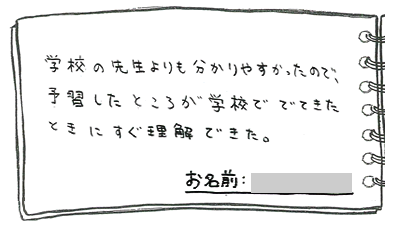 学校の先生よりも分かりやすかったので、
予習したところが学校ででてきた
ときにすぐ理解できた。
お名前: